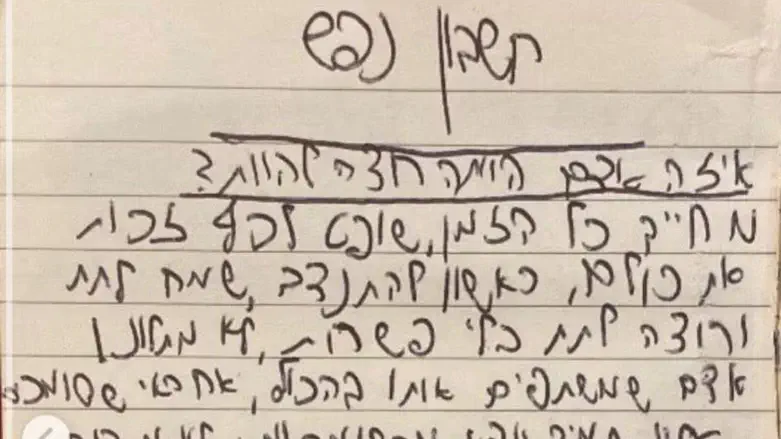 חשבון נפש
איזה אדם היתה רוצה להוות?
מחייך כל הזמן, שופט לכף זכות
את כולם, ראשון להתנדב, שמח לתת
ורוצה לתת בלי פשרות, לא מתלונן
אדם שמשתפים אותו בהכול, אחראי שסומכים